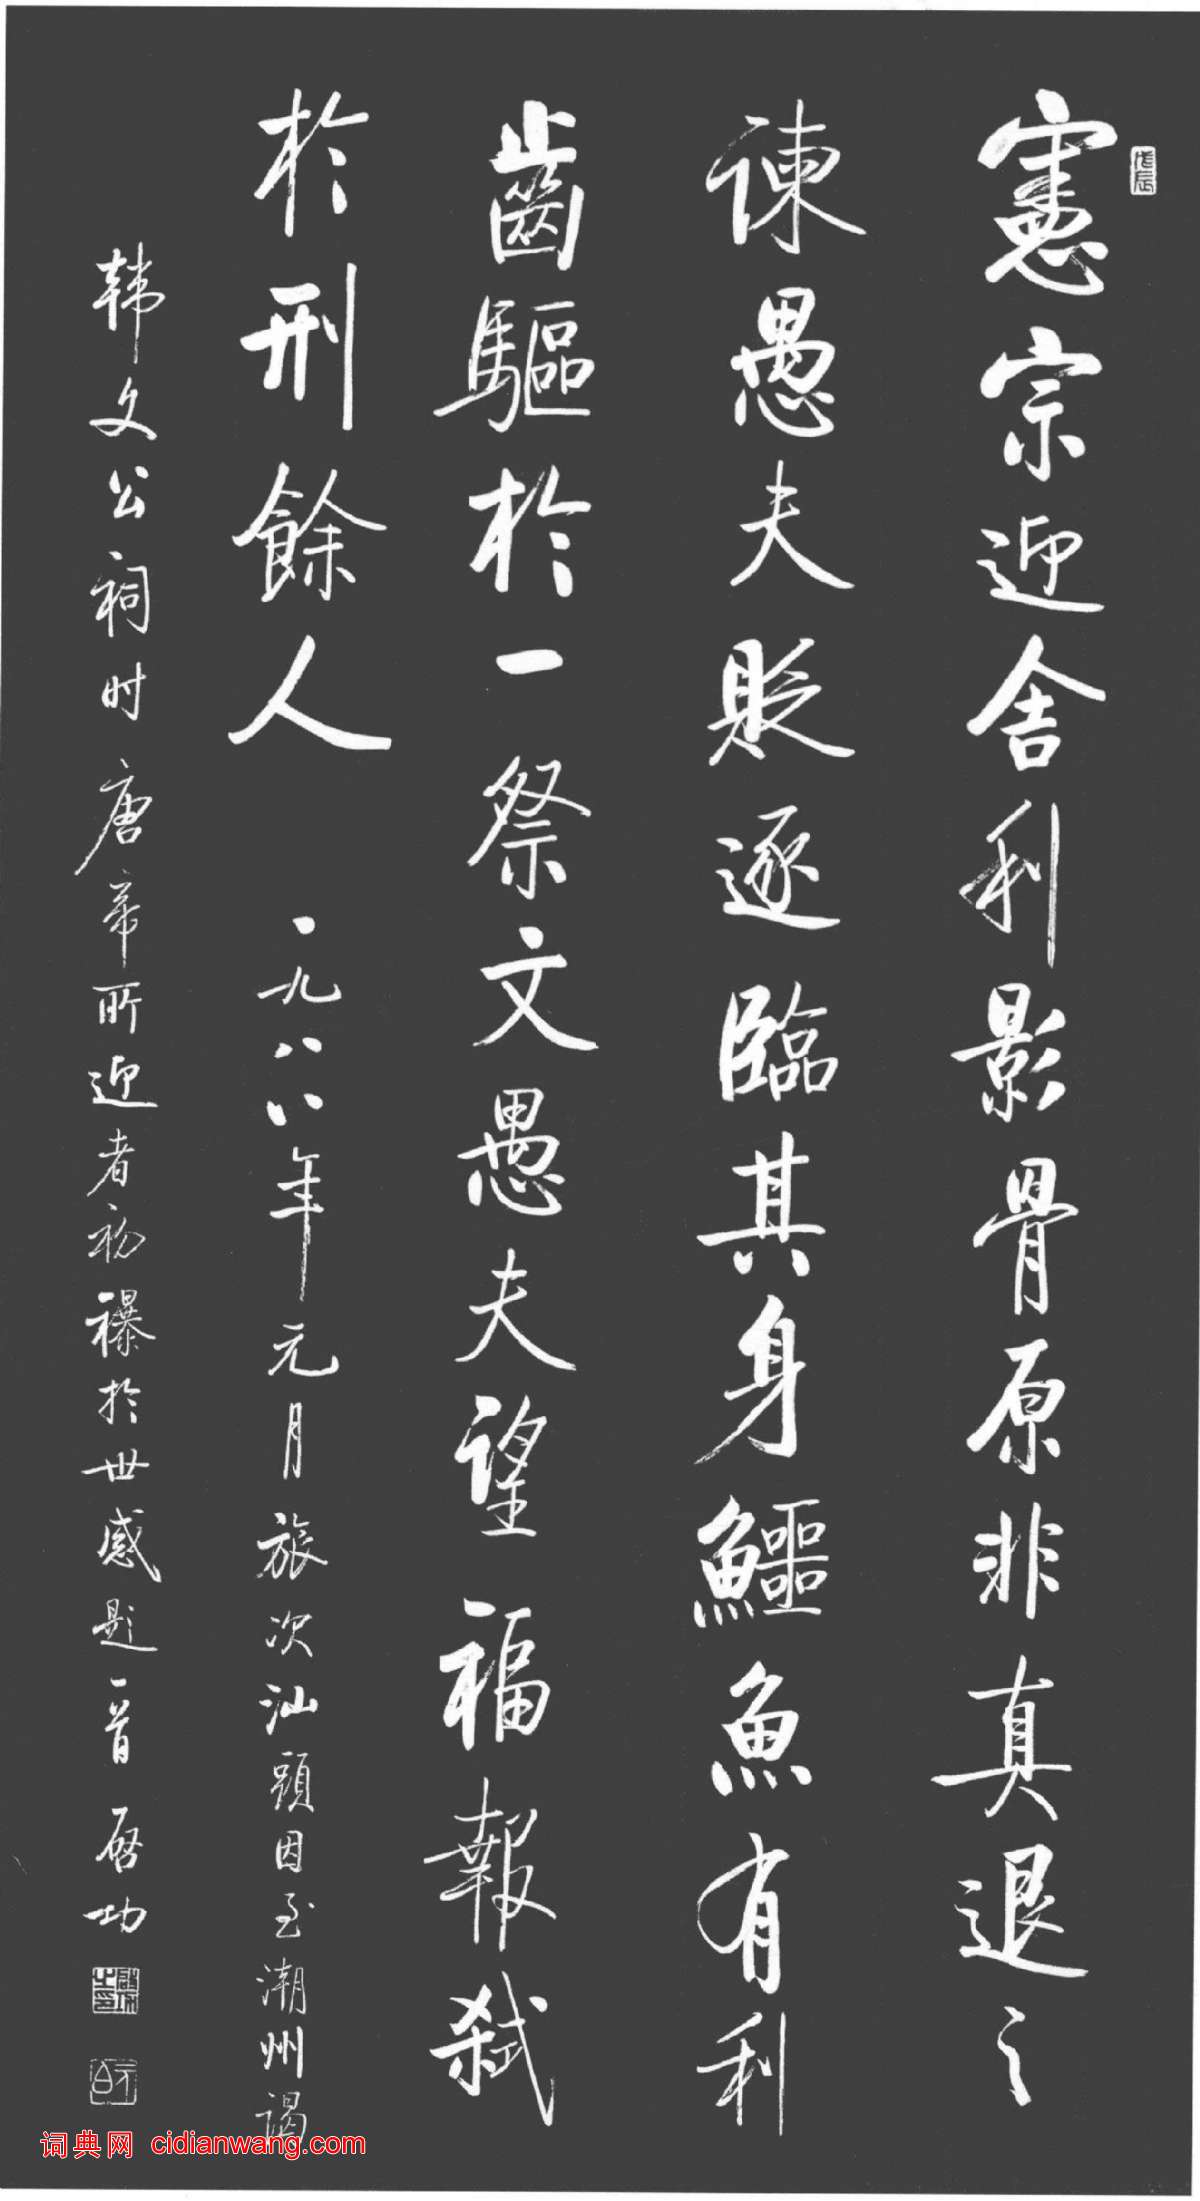 憲宗迎舍利影骨原非真退之
諫愚夫貶逐臨其身鱷魚有利
齒驅於一祭文愚夫望福報弑
於刑餘人 一九八八年元月旅次汕頭因至潮州謁
韩文公祠时唐帝所迎者初襮於世感题一首 启功
戊辰
词典网 cidianwang.com